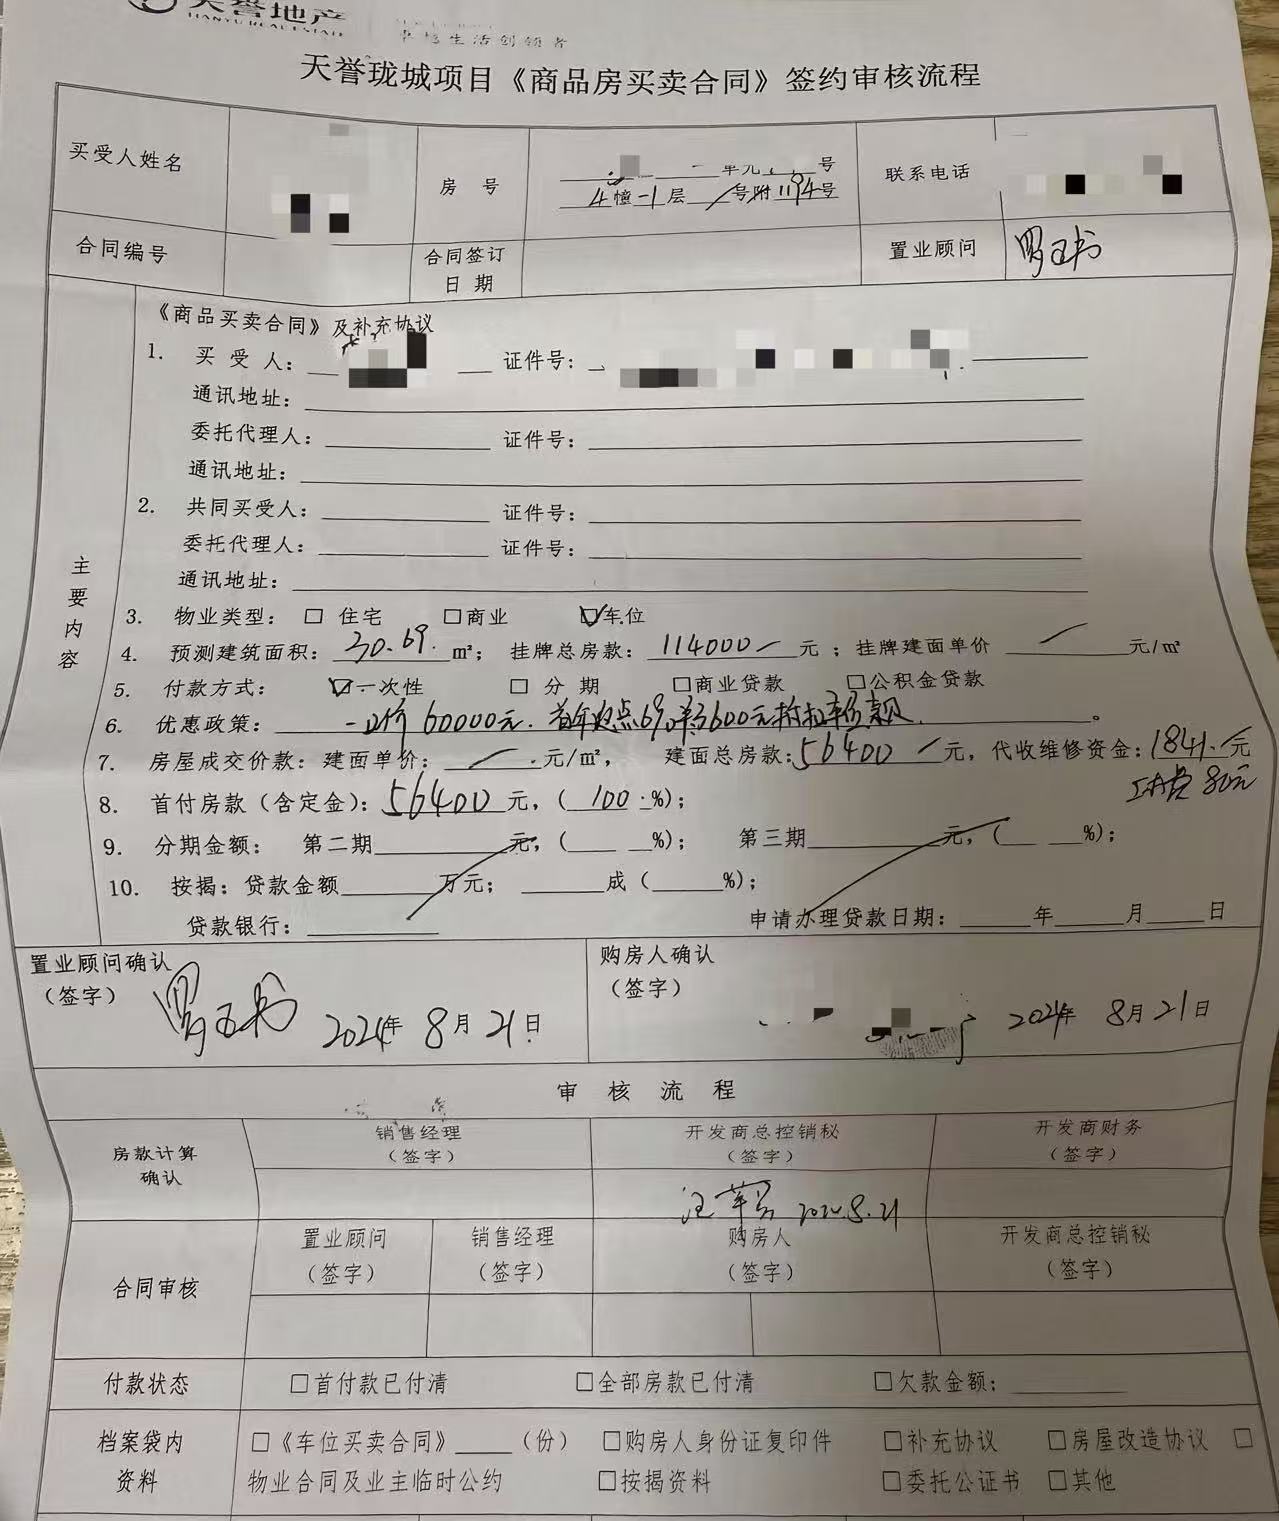 天誉地产
TIANYU REAL ESTATE
生活创领者
天誉珑城项目《商品房买卖合同》签约审核流程
买受人姓名
房 号
单元 号
4幢-1层 / 号附1194号
联系电话
合同编号
合同签订
日 期
置业顾问
主要内容
《商品买卖合同》及补充协议
1. 买 受 人: 证件号:
通讯地址:
委托代理人: 证件号:
通讯地址:
2. 共同买受人: 证件号:
委托代理人: 证件号:
通讯地址:
3. 物业类型: □ 住宅 □商业 ☑车位
4. 预测建筑面积: 30.69 m²; 挂牌总房款: 114000/ 元 ; 挂牌建面单价 / 元/㎡
5. 付款方式: ☑一次性 □ 分 期 □商业贷款 □公积金贷款
6. 优惠政策: 一口价 60000元. 3600元 。
7. 房屋成交价款: 建面单价: / 元/㎡, 建面总房款: 56400/ 元, 代收维修资金: 1841./元
80元
8. 首付房款(含定金): 56400 元, ( 100 %);
9. 分期金额: 第二期 元, ( %); 第三期 元, ( %);
10. 按揭: 贷款金额 万元; 成 ( %);
贷款银行: 申请办理贷款日期: 年 月 日
置业顾问确认
(签字)
2024年 8月 21日
购房人确认
(签字)
2024年 8月 21日
审 核 流 程
房款计算
确认
销售经理
(签字)
开发商总控销秘
(签字)
开发商财务
(签字)
2024.8.21
合同审核
置业顾问
(签字)
销售经理
(签字)
购房人
(签字)
开发商总控销秘
(签字)
付款状态 □首付款已付清 □全部房款已付清 □欠款金额:
档案袋内
资料
□《车位买卖合同》 (份) □购房人身份证复印件 □补充协议 □房屋改造协议 □
物业合同及业主临时公约 □按揭资料 □委托公证书 □其他